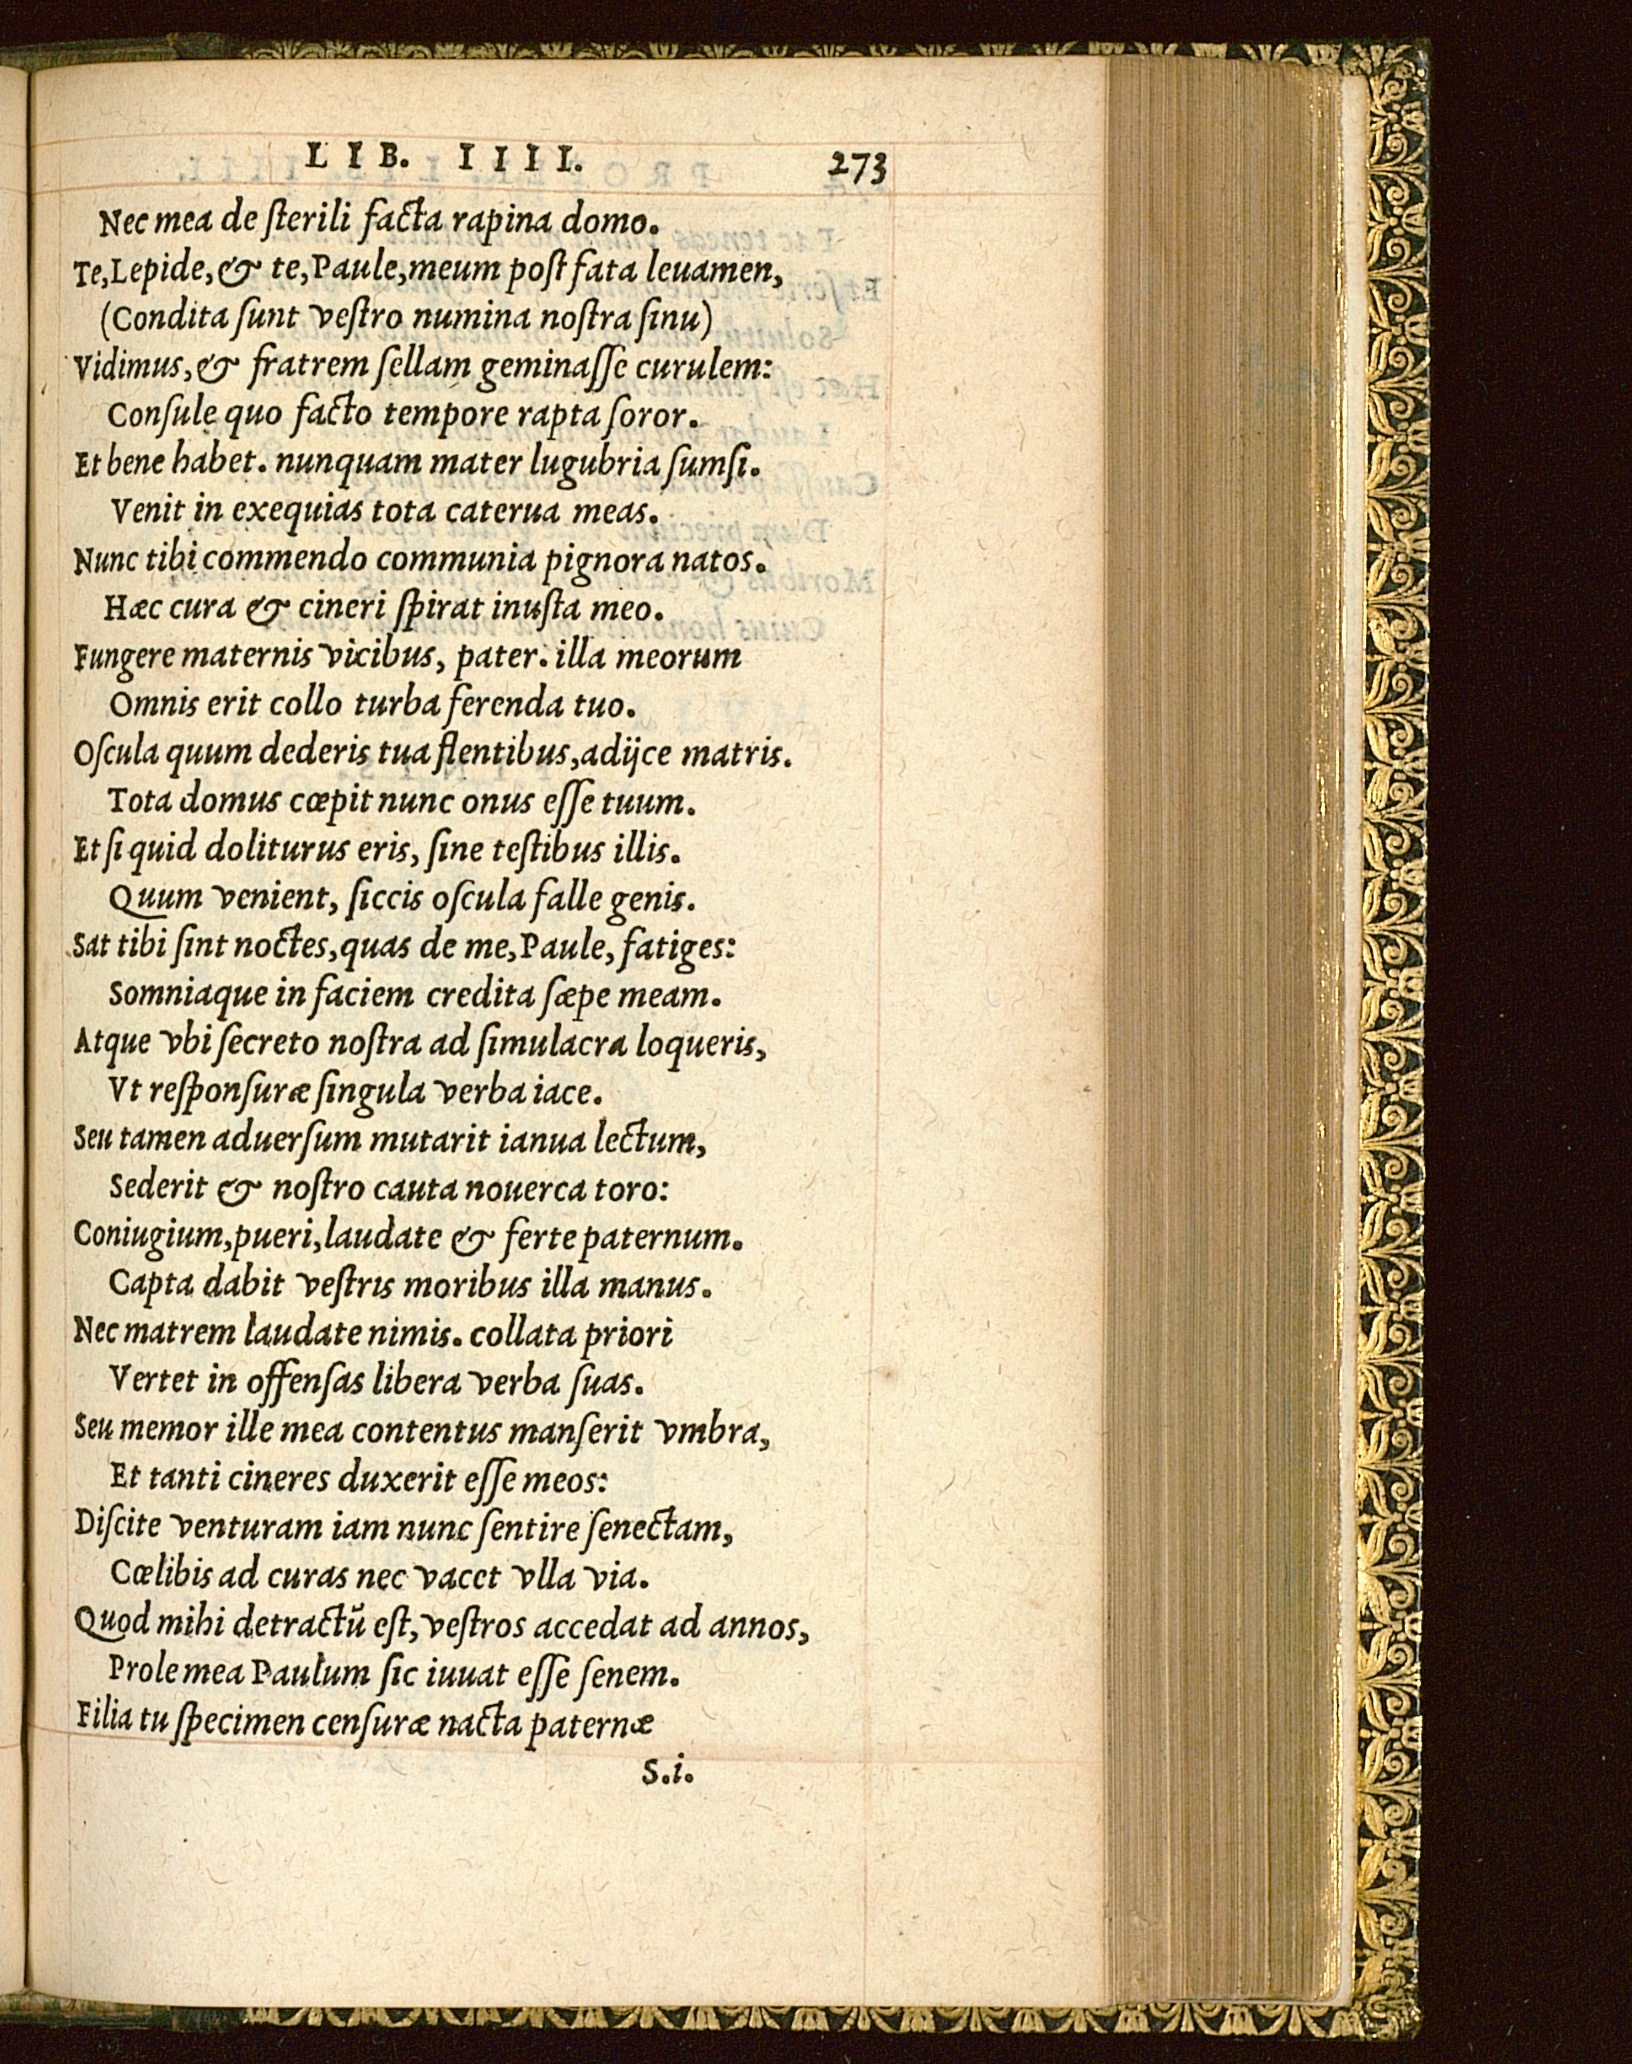 LIB. IIII. 273
Nec mea de ſterili facta rapina domo.
Te, Lepide, & te, Paule, meum poſt fata leuamen,
(Condita ſunt veſtro numina noſtra ſinu)
Vidimus, & fratrem ſellam geminaſſe curulem:
Conſule quo facto tempore rapta ſoror.
Et bene habet. nunquam mater lugubria ſumſi.
Venit in exequias tota caterua meas.
Nunc tibi commendo communia pignora natos.
Hæc cura & cineri ſpirat inuſta meo.
Fungere maternis vicibus, pater. illa meorum
Omnis erit collo turba ferenda tuo.
Oſcula quum dederis tua flentibus, adijce matris.
Tota domus cœpit nunc onus eſſe tuum.
Et ſi quid doliturus eris, ſine teſtibus illis.
Quum venient, ſiccis oſcula falle genis.
Sat tibi ſint noctes, quas de me, Paule, fatiges:
Somniaque in faciem credita ſæpe meam.
Atque vbi ſecreto noſtra ad ſimulacra loqueris,
Vt reſponſuræ ſingula verba iace.
Seu tamen aduerſum mutarit ianua lectum,
Sederit & noſtro cauta nouerca toro:
Coniugium, pueri, laudate & ferte paternum.
Capta dabit veſtris moribus illa manus.
Nec matrem laudate nimis. collata priori
Vertet in offenſas libera verba ſuas.
Seu memor ille mea contentus manſerit vmbra,
Et tanti cineres duxerit eſſe meos:
Diſcite venturam iam nunc ſentire ſenectam,
Cœlibis ad curas nec vacet vlla via.
Quod mihi detractū eſt, veſtros accedat ad annos,
Prole mea Paulum ſic iuuat eſſe ſenem.
Filia tu ſpecimen cenſuræ nacta paternæ
S.i.